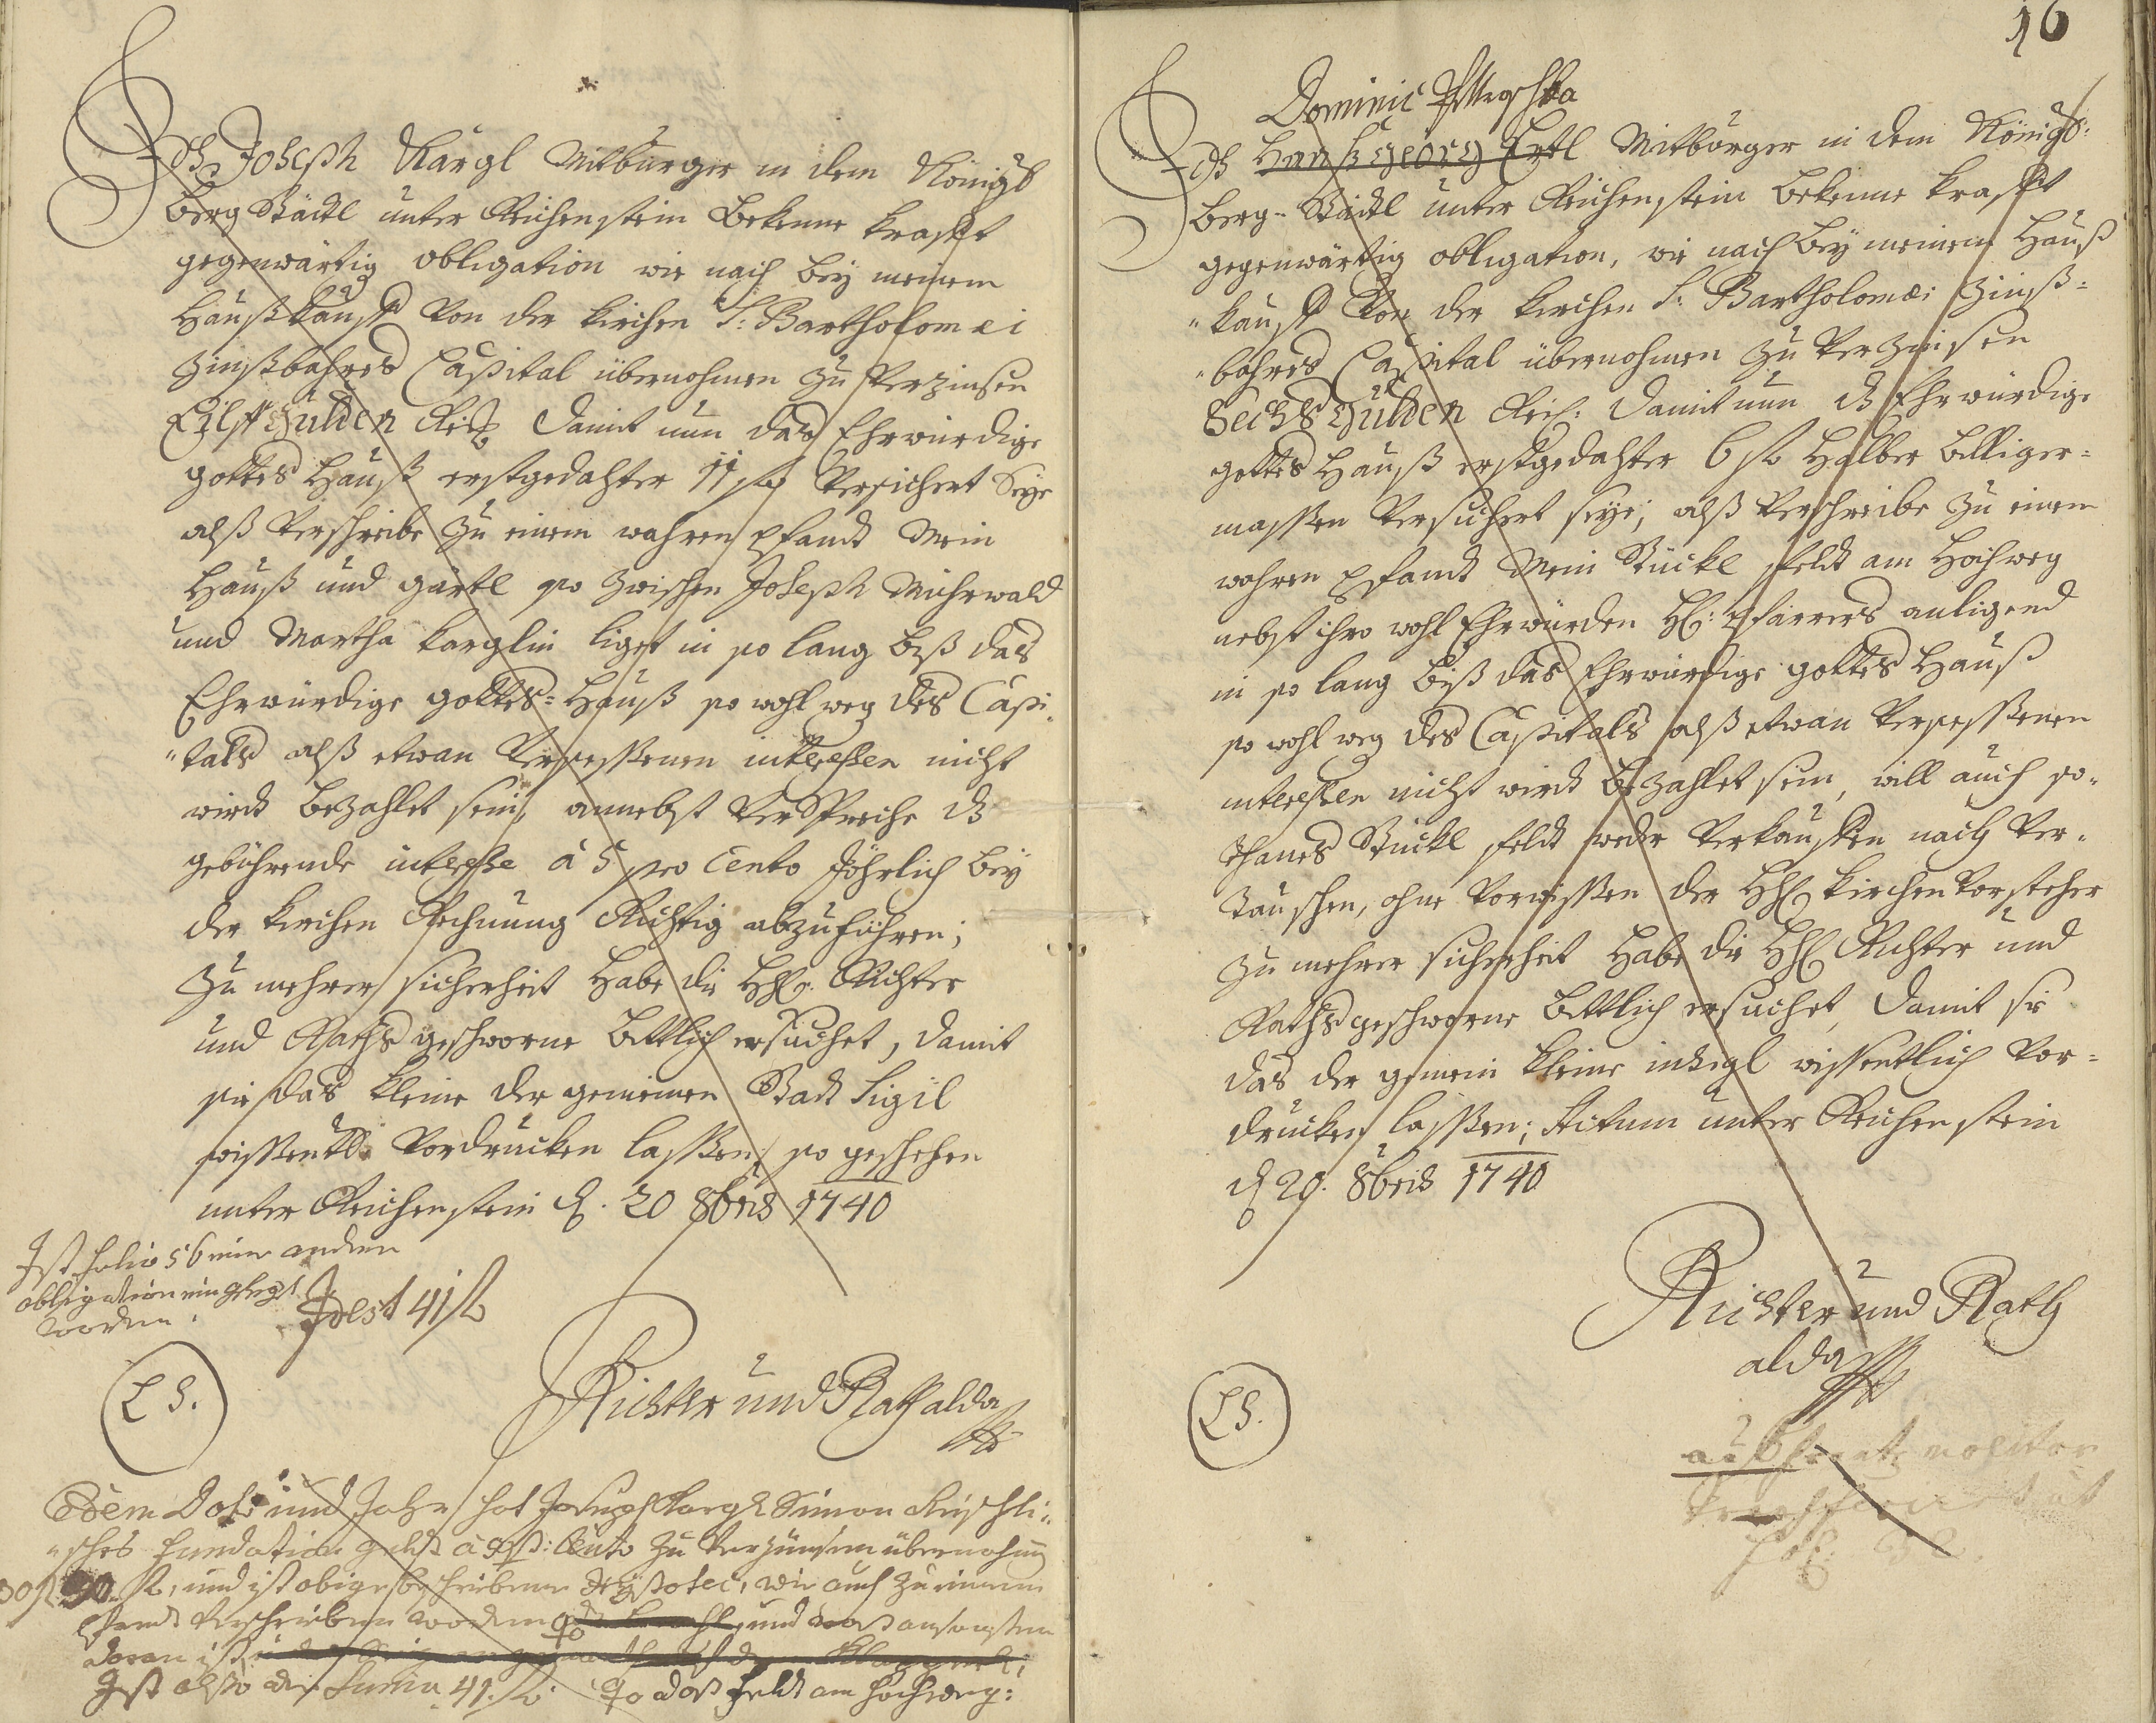 Ich Joseph Kargl Mitburger in dem Königl
Berg Städl unter Reichenstein Bekenne krafft
gegenwärtig obligation wie nach beÿ meinem
Haußkauff von der kirchen S: Bartholomæi
Zinßbahres Capital übernohmen zu verzinsen
Eilff Gulden Reis. Damit nun das Ehrwürdige
gottes Hauß erstgedachter 11 fl versichert Seÿe
alß verschreibe zu einem wahren Pfandt Mein
Hauß und gärtl so zwischen Joseph Mührwald
und Martha karglin liget in so lang biß das
Ehrwürdige gottes-Hauß so wohl weg des Capi-
"tals alß etwan versessenen interessen nicht
wirdt bezahlet sein, annebst verspreche d
gebührende interesse à 5 pro Cento Jährlich beÿ
der kirchen Rechnung Richtig abzuführen;
Zu mehrer sicherheit habe die HH. Richter
und Raths geschworne bittlich ersuchet, damit
sie das kleine der gemeinen Stadt Sigil
wissentl. vordrucken lassen, so geschehen
unter Reichenstein d. 20 8bris 1740
Ist folio 56 einer andern
obligation eingelegt
worden.
Idest 41 fl
L S.
Richter und Rath alda
Eodem Dato und Jahr hat Joseph Kargl Simon
"sches fundation geldt à 5 p: Cento zu verzünsen übernohmen
30 fl 30 fl, und ist obige beschriebene Hÿpotec, wie auch zu einem
Pfandt verschrieben worden und was ansonsten
daran ist
Ist also die Suma 41. fl. so das feldt am hochweg:
16
Dominic
Ich Hanß Georg Ertl Mitbürger in dem Königl:
Berg-Städl unter Reichenstein bekenne krafft
gegenwärtig obligation, wie nach beÿ meinem Hauß
"kauff von der kirchen S: Bartholomæi Zinß-
"bahres Capital übernohmen zu verzinsen
Sechs Gulden Reis: damit nun d Ehrwürdige
gottes Hauß erstgedachter 6 fl halber billiger-
massen versichert seÿe; alß verschreibe zu einem
wahren Pfandt Mein Stückl feldt am Hochweg
nebst ihro wohl Ehrwürden H: Pfarrers anligend
in so lang biß das Ehrwürdige gottes Hauß
so wohl weg des Capitals alß etwan versessenen
interessen nicht wirdt bezahlet sein, will auch so-
thanes Stückl feldt weder verkauffen noch ver-
tauschen, ohne vorwissen der HH kirchen vorsteher
zu mehrer sicherheit habe die HH Richter und
Raths geschworne bittlich ersuchet, damit sie
das der gemein kleine insigl wissentlich vor-
drucken lassen; Actum unter Reichenstein
d 20. 8bris 1740
Richter und Rath
alda
L S.